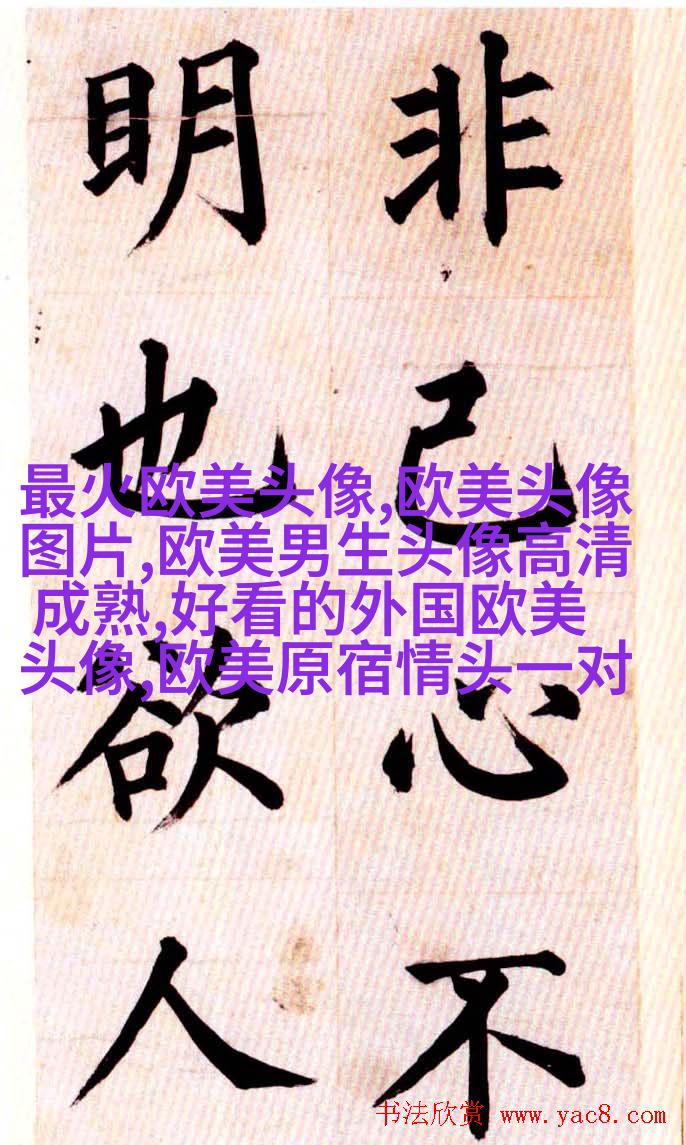 非己心不
明也欲人
最火欧美头像,欧美头像
图片,欧美男生头像高清
成熟,好看的外国欧美
头像,欧美原宿情头一对
书法欣赏 www.yac8.com